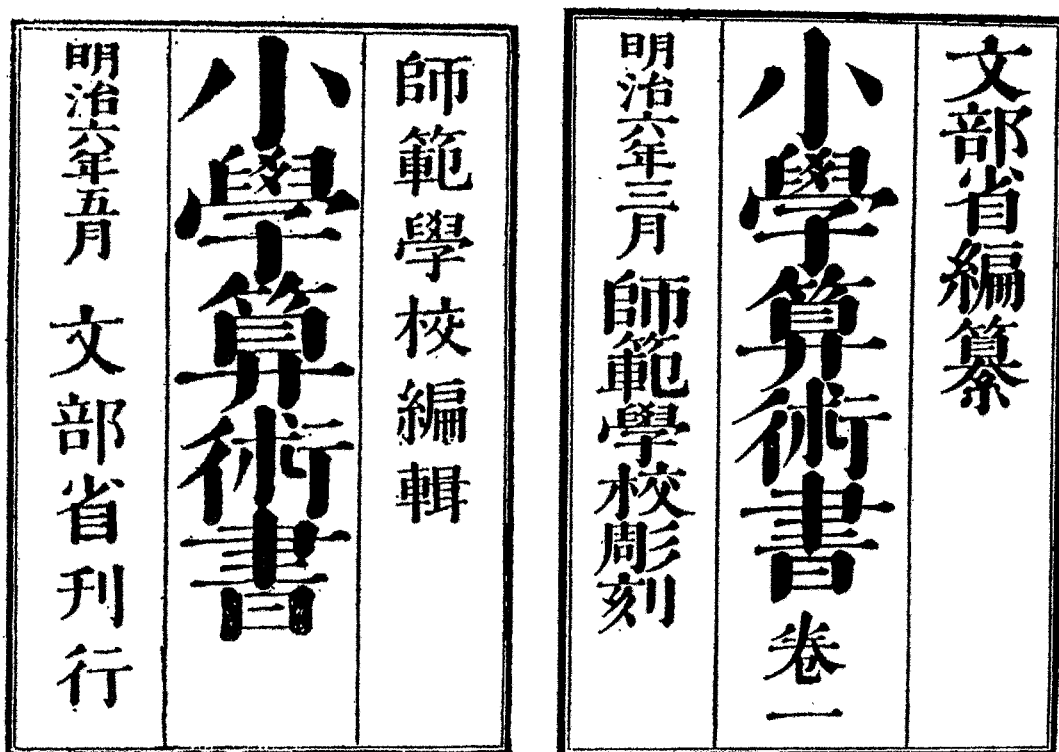 文部省編纂
小學算術書卷一
明治六年三月師範學校彫刻
師範學校編輯
小學算術書
明治六年五月 文部省刊行